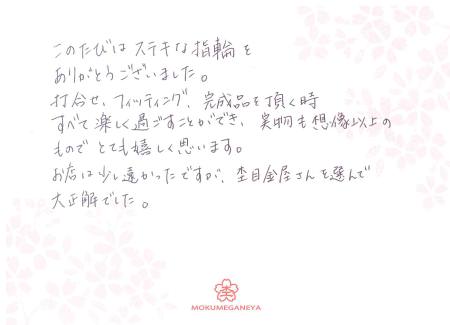 このたびは ステキな 指輪を
ありがとうございました。
打合せ、フィッティング、完成品を頂く時
すべて楽しく過ごすことができ、実物も想像以上の
もので とても嬉しく思います。
お店は少し遠かったですが、杢目金屋さんを選んで
大正解でした。
杢
MOKUMEGANEYA